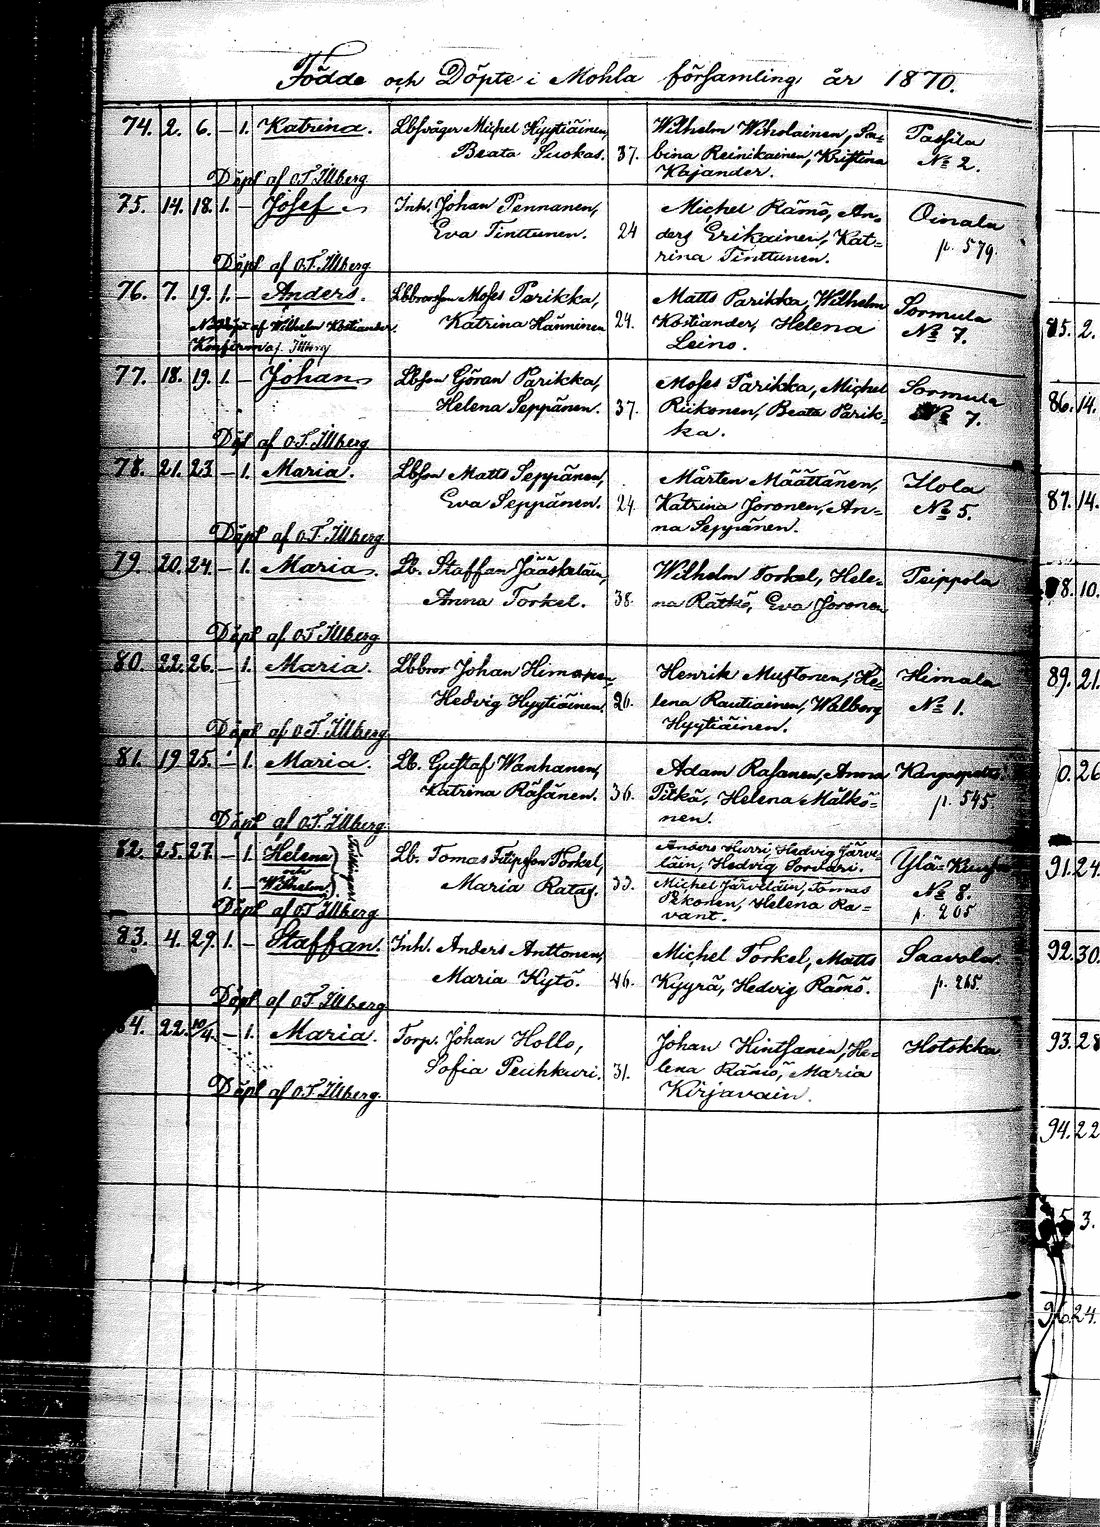 Födde och Döpte i Mohla församling år 1870.
74. 2. 6. — 1. Katrina. Lbfsväger Michel Hyytiäinen, Wilhelm Wiholainen, Sa=
Beata Suokas. 37. bina Reinikainen, Kristina Passila
Döpt af O.T. Illberg Kajander. № 2.
75. 14. 18. 1. — Josef Inh. Johan Pennanen, Michel Rämö, An=
Eva Tinttunen. 24 ders Erikainen, Kat= Oinala
Döpt af O.T. Illberg rina Tinttunen. p. 579.
76. 7. 19. 1. — Anders. Lbbrorson Moses Parikka, Matts Parikka, Wilhelm
Katrina Hänninen 24. Kostiander, Helena Sormula
Nöddöpt af Wilhelm Kostiander. Leino. № 7.
Konfirm. af Illberg
77. 18. 19. 1. — Johan Lbson Göran Parikka, Moses Parikka, Michel Sormula
Helena Seppänen. 37. Riikonen, Beata Parik= № 7.
Döpt af O.T. Illberg ka.
78. 21. 23 — 1. Maria. Lbson Matts Seppänen, Mårten Määttänen, Ilola
Eva Seppänen. 24. Katrina Joronen, An= № 5.
Döpt af O.T. Illberg na Seppänen.
79. 20. 24. — 1. Maria. Lb. Staffan Jääskeläin, Wilhelm Torkel, Hele= Peippola
Anna Torkel. 38. na Rätkö, Eva Joronen
Döpt af O.T. Illberg
80. 22. 26. — 1. Maria. Lbbror Johan Himanen, Henrik Mustonen, He= Himala
Hedvig Hyytiäinen. 26. lena Rautiainen, Walborg № 1.
Döpt af O.T. Illberg Hyytiäinen.
81. 19 25. — 1. Maria. Lb. Gustaf Wanhanen, Adam Rasanen, Anna Kangaspelto
Katrina Räsänen. 36. Pitkä, Helena Mälkö= p. 545.
Döpt af O.T. Illberg nen.
82. 25. 27. — 1. Helena Lb. Tomas Filipsson Torkel, Anders Hurri, Hedvig Järve=
och Tvillingar läin, Hedvig Sorvari. Ylä-Kuusa
1. — Wilhelm Maria Ratas. 33. Michel Järveläin, Tomas № 8.
Döpt af O.T. Illberg Pekonen, Helena Ra= p. 205
vant.
83. 4. 29. 1. — Staffan. Inh. Anders Anttonen, Michel Torkel, Matts Saavola.
Maria Kytö. 46. Kyyrä, Hedvig Rämö. p. 265
Döpt af O.T. Illberg
84. 22. 10/4. — 1. Maria. Torp. Johan Hollo, Johan Hintsanen, He= Hotokka
Sofia Peuhkuri. 31. lena Rämö, Maria
Döpt af O.T. Illberg. Kirjavain.
85. 2.
86. 14.
87. 14.
88. 10.
89. 21.
90. 26
91. 24
92. 30.
93. 28
94. 22
95. 3.
96. 24.